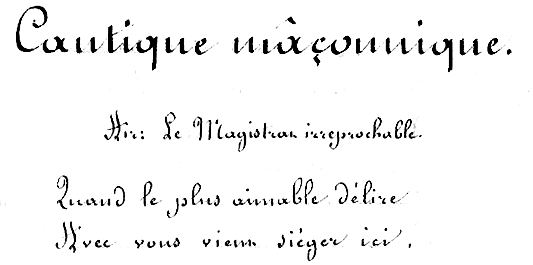 Cantique mâçonnique.
Air: Le Magistrat irreprochable.
Quand le plus aimable délire
Avec vous vient siéger ici.